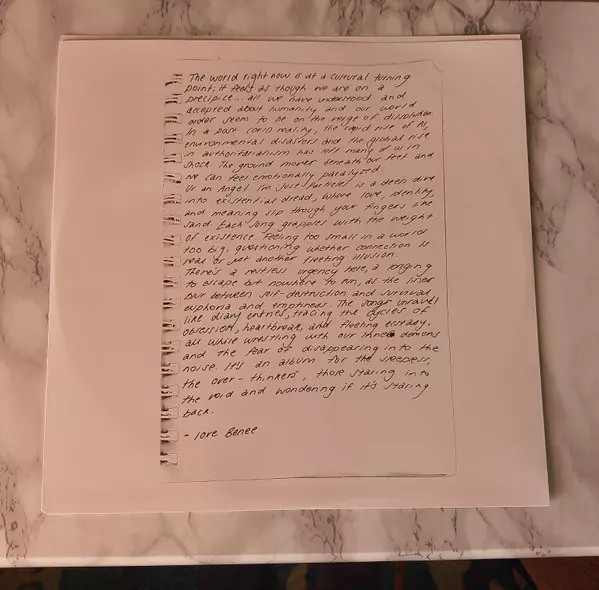 The world right now is at a cultural turning
point; it feels as though we are on a
precipice... all we have understood and
accepted about humanity and our world
order seem to be on the verge of dissolution.
In a post covid reality, the rapid rise of AI,
environmental disasters and the global rise
in authoritarianism has left many of us in
shock. The ground moves beneath our feet and
we can feel emotionally paralyzed.
Ur an Angel I'm Just Particles is a deep dive
into existential dread, where love, identity,
and meaning slip though your fingers like
sand. Each song grapples with the weight
of existence. Feeling too small in a world
too big, questioning whether connection is
real or just another fleeting illusion.
There's a restless urgency here, a longing
to escape but nowhere to run, as the lines
blur between self-destruction and survival,
euphoria and emptiness. The songs unravel
like diary entries, tracing the cycles of
obsession, heartbreak, and fleeting ecstasy,
all while wrestling with our inner demons
and the fear of disappearing into the
noise. It's an album for the sleepless,
the over-thinkers, those staring into
the void and wondering if it's staring
back.
- love Benee